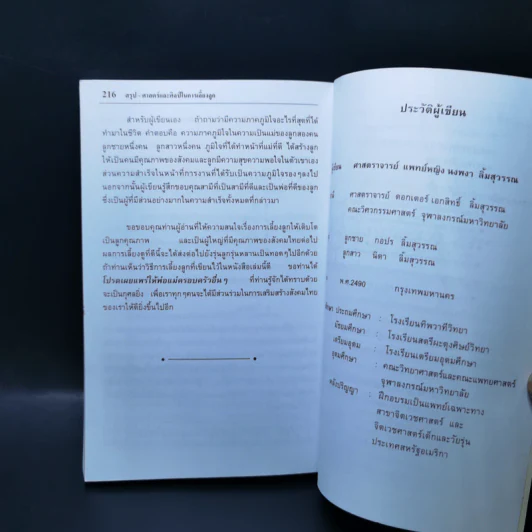 216 สรุป-ศาสตร์และศิลป์ในการเลี้ยงลูก
สำหรับผู้เขียนเอง ถ้าถามว่ามีความภาคภูมิใจอะไรที่สุดที่ได้
ทำมาในชีวิต คำตอบคือ ความภาคภูมิใจในความเป็นแม่ของลูกสองคน
ลูกชายหนึ่งคน ลูกสาวหนึ่งคน ภูมิใจที่ได้ทำหน้าที่แม่ที่ดี ได้สร้างลูก
ให้เป็นคนมีคุณภาพของสังคมและลูกมีความสุขความพอใจในตัวเขาเอง
ส่วนความสำเร็จในหน้าที่การงานที่ได้รับเป็นความภูมิใจรองๆลงไป
นอกจากนั้นผู้เขียนรู้สึกขอบคุณสามีที่เป็นสามีที่ดีและเป็นพ่อที่ดีของลูก
ซึ่งเป็นผู้ที่มีส่วนอย่างมากในความสำเร็จทั้งหมดที่กล่าวมา
ขอขอบคุณท่านผู้อ่านที่ให้ความสนใจเรื่องการเลี้ยงลูกให้เติบโต
เป็นลูกคุณภาพ และเป็นผู้ใหญ่ที่มีคุณภาพของสังคมไทยต่อไป
ผลการเลี้ยงดูที่ดีนี้จะได้ส่งต่อไปยังรุ่นลูกรุ่นหลานเป็นทอดๆไปอีกด้วย
ถ้าท่านเห็นว่าวิธีการเลี้ยงลูกที่เขียนไว้ในหนังสือเล่มนี้ดี ขอท่านได้
โปรดเผยแพร่ให้พ่อแม่ครอบครัวอื่นๆ ที่ท่านรู้จักได้ทราบด้วย
จะเป็นกุศลยิ่ง เพื่อเราทุกๆคนจะได้มีส่วนร่วมในการเสริมสร้างสังคมไทย
ของเราให้ดียิ่งขึ้นไปอีก
ประวัติผู้เขียน
ศาสตราจารย์ แพทย์หญิง นงพงา ลิ้มสุวรรณ
ศาสตราจารย์ ดอกเตอร์ เอกสิทธิ์ ลิ้มสุวรรณ
คณะวิศวกรรมศาสตร์ จุฬาลงกรณ์มหาวิทยาลัย
ลูกชาย กอปร ลิ้มสุวรรณ
ลูกสาว นิดา ลิ้มสุวรรณ
พ.ศ.2490 กรุงเทพมหานคร
ประถมศึกษา : โรงเรียนทิพวาทีวิทยา
มัธยมศึกษา : โรงเรียนสตรีมะดุงศิษย์วิทยา
เตรียมอุดม : โรงเรียนเตรียมอุดมศึกษา
อุดมศึกษา : คณะวิทยาศาสตร์และคณะแพทยศาสตร์
จุฬาลงกรณ์มหาวิทยาลัย
หลังปริญญา : ฝึกอบรมเป็นแพทย์เฉพาะทาง
สาขาจิตเวชศาสตร์ และ
จิตเวชศาสตร์เด็กและวัยรุ่น
ประเทศสหรัฐอเมริกา